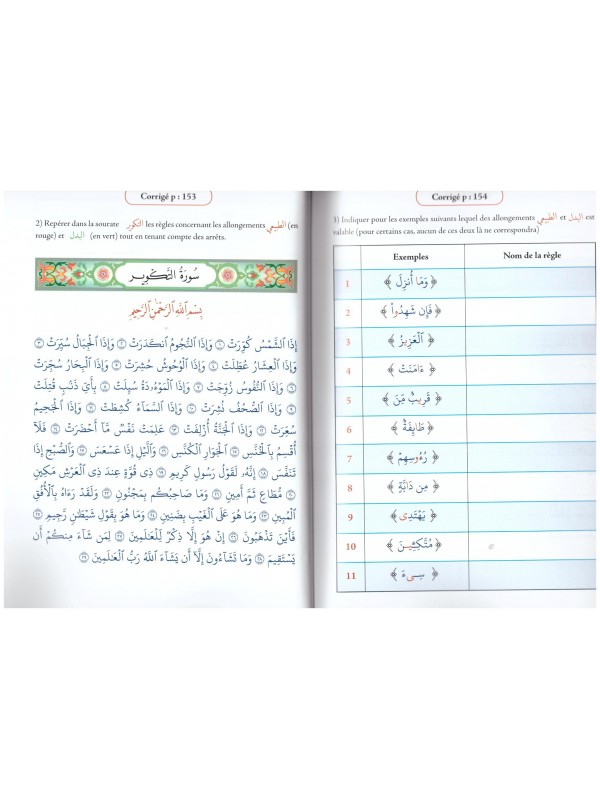 Corrigé p : 153
2) Repérer dans la sourate التكوير les règles concernant les allongements الطبيعي (en
rouge) et البدل (en vert) tout en tenant compte des arrêts.
سُورَةُ التَّكْوِيرِ
بِسْمِ ٱللَّهِ ٱلرَّحْمَٰنِ ٱلرَّحِيمِ
إِذَا ٱلشَّمْسُ كُوِّرَتْ ١ وَإِذَا ٱلنُّجُومُ ٱنكَدَرَتْ ٢ وَإِذَا ٱلْجِبَالُ سُيِّرَتْ ٣
وَإِذَا ٱلْعِشَارُ عُطِّلَتْ ٤ وَإِذَا ٱلْوُحُوشُ حُشِرَتْ ٥ وَإِذَا ٱلْبِحَارُ سُجِّرَتْ
٦ وَإِذَا ٱلنُّفُوسُ زُوِّجَتْ ٧ وَإِذَا ٱلْمَوْءُۥدَةُ سُئِلَتْ ٨ بِأَيِّ ذَنۢبٍ قُتِلَتْ
٩ وَإِذَا ٱلصُّحُفُ نُشِرَتْ ١٠ وَإِذَا ٱلسَّمَآءُ كُشِطَتْ ١١ وَإِذَا ٱلْجَحِيمُ
سُعِّرَتْ ١٢ وَإِذَا ٱلْجَنَّةُ أُزْلِفَتْ ١٣ عَلِمَتْ نَفْسٌ مَّآ أَحْضَرَتْ ١٤ فَلَآ
أُقْسِمُ بِٱلْخُنَّسِ ١٥ ٱلْجَوَارِ ٱلْكُنَّسِ ١٦ وَٱلَّيْلِ إِذَا عَسْعَسَ ١٧ وَٱلصُّبْحِ إِذَا
تَنَفَّسَ ١٨ إِنَّهُۥ لَقَوْلُ رَسُولٍ كَرِيمٍ ١٩ ذِى قُوَّةٍ عِندَ ذِى ٱلْعَرْشِ مَكِينٍ
٢٠ مُّطَاعٍ ثَمَّ أَمِينٍ ٢١ وَمَا صَاحِبُكُم بِمَجْنُونٍ ٢٢ وَلَقَدْ رَءَاهُ بِٱلْأُفُقِ
ٱلْمُبِينِ ٢٣ وَمَا هُوَ عَلَى ٱلْغَيْبِ بِضَنِينٍ ٢٤ وَمَا هُوَ بِقَوْلِ شَيْطَٰنٍ رَّجِيمٍ ٢٥
فَأَيْنَ تَذْهَبُونَ ٢٦ إِنْ هُوَ إِلَّا ذِكْرٌ لِّلْعَٰلَمِينَ ٢٧ لِمَن شَآءَ مِنكُمْ أَن
يَسْتَقِيمَ ٢٨ وَمَا تَشَآءُونَ إِلَّآ أَن يَشَآءَ ٱللَّهُ رَبُّ ٱلْعَٰلَمِينَ ٢٩
Corrigé p : 154
3) Indiquer pour les exemples suivants lequel des allongements الطبيعي et البدل est
valable (pour certains cas, aucun de ces deux là ne correspondra)
Exemples Nom de la règle
1 ﴿ وَمَا أُنزِلَ ﴾
2 ﴿ فَإِن شَهِدُوا۟ ﴾
3 ﴿ ٱلْعَزِيزُ ﴾
4 ﴿ ءَامَنَتْ ﴾
5 ﴿ قَرِيبٌ مِّنَ ﴾
6 ﴿ طَآئِفَةٌ ﴾
7 ﴿ رُءُوسِهِمْ ﴾
8 ﴿ مِن دَآبَّةٍ ﴾
9 ﴿ يَهْتَدِى ﴾
10 ﴿ مُتَّكِـِٔينَ ﴾
11 ﴿ سِىٓءَ ﴾